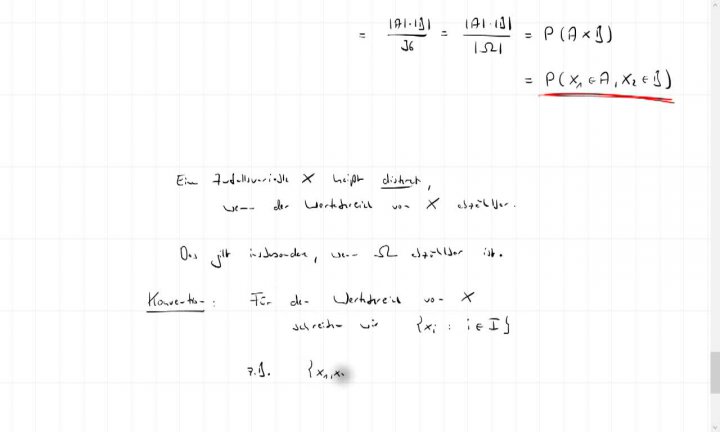 = |A|·|B| / 36 = |A|·|B| / |Ω| = P(A×B)
= P(X₁∈A, X₂∈B)
Eine Zufallsvariable X heißt diskret,
wenn der Wertebereich von X abzählbar.
Das gilt insbesondere, wenn Ω abzählbar ist.
Konvention: Für den Wertebereich von X
schreiben wir {xᵢ : i∈I}
z.B. {x₁,x